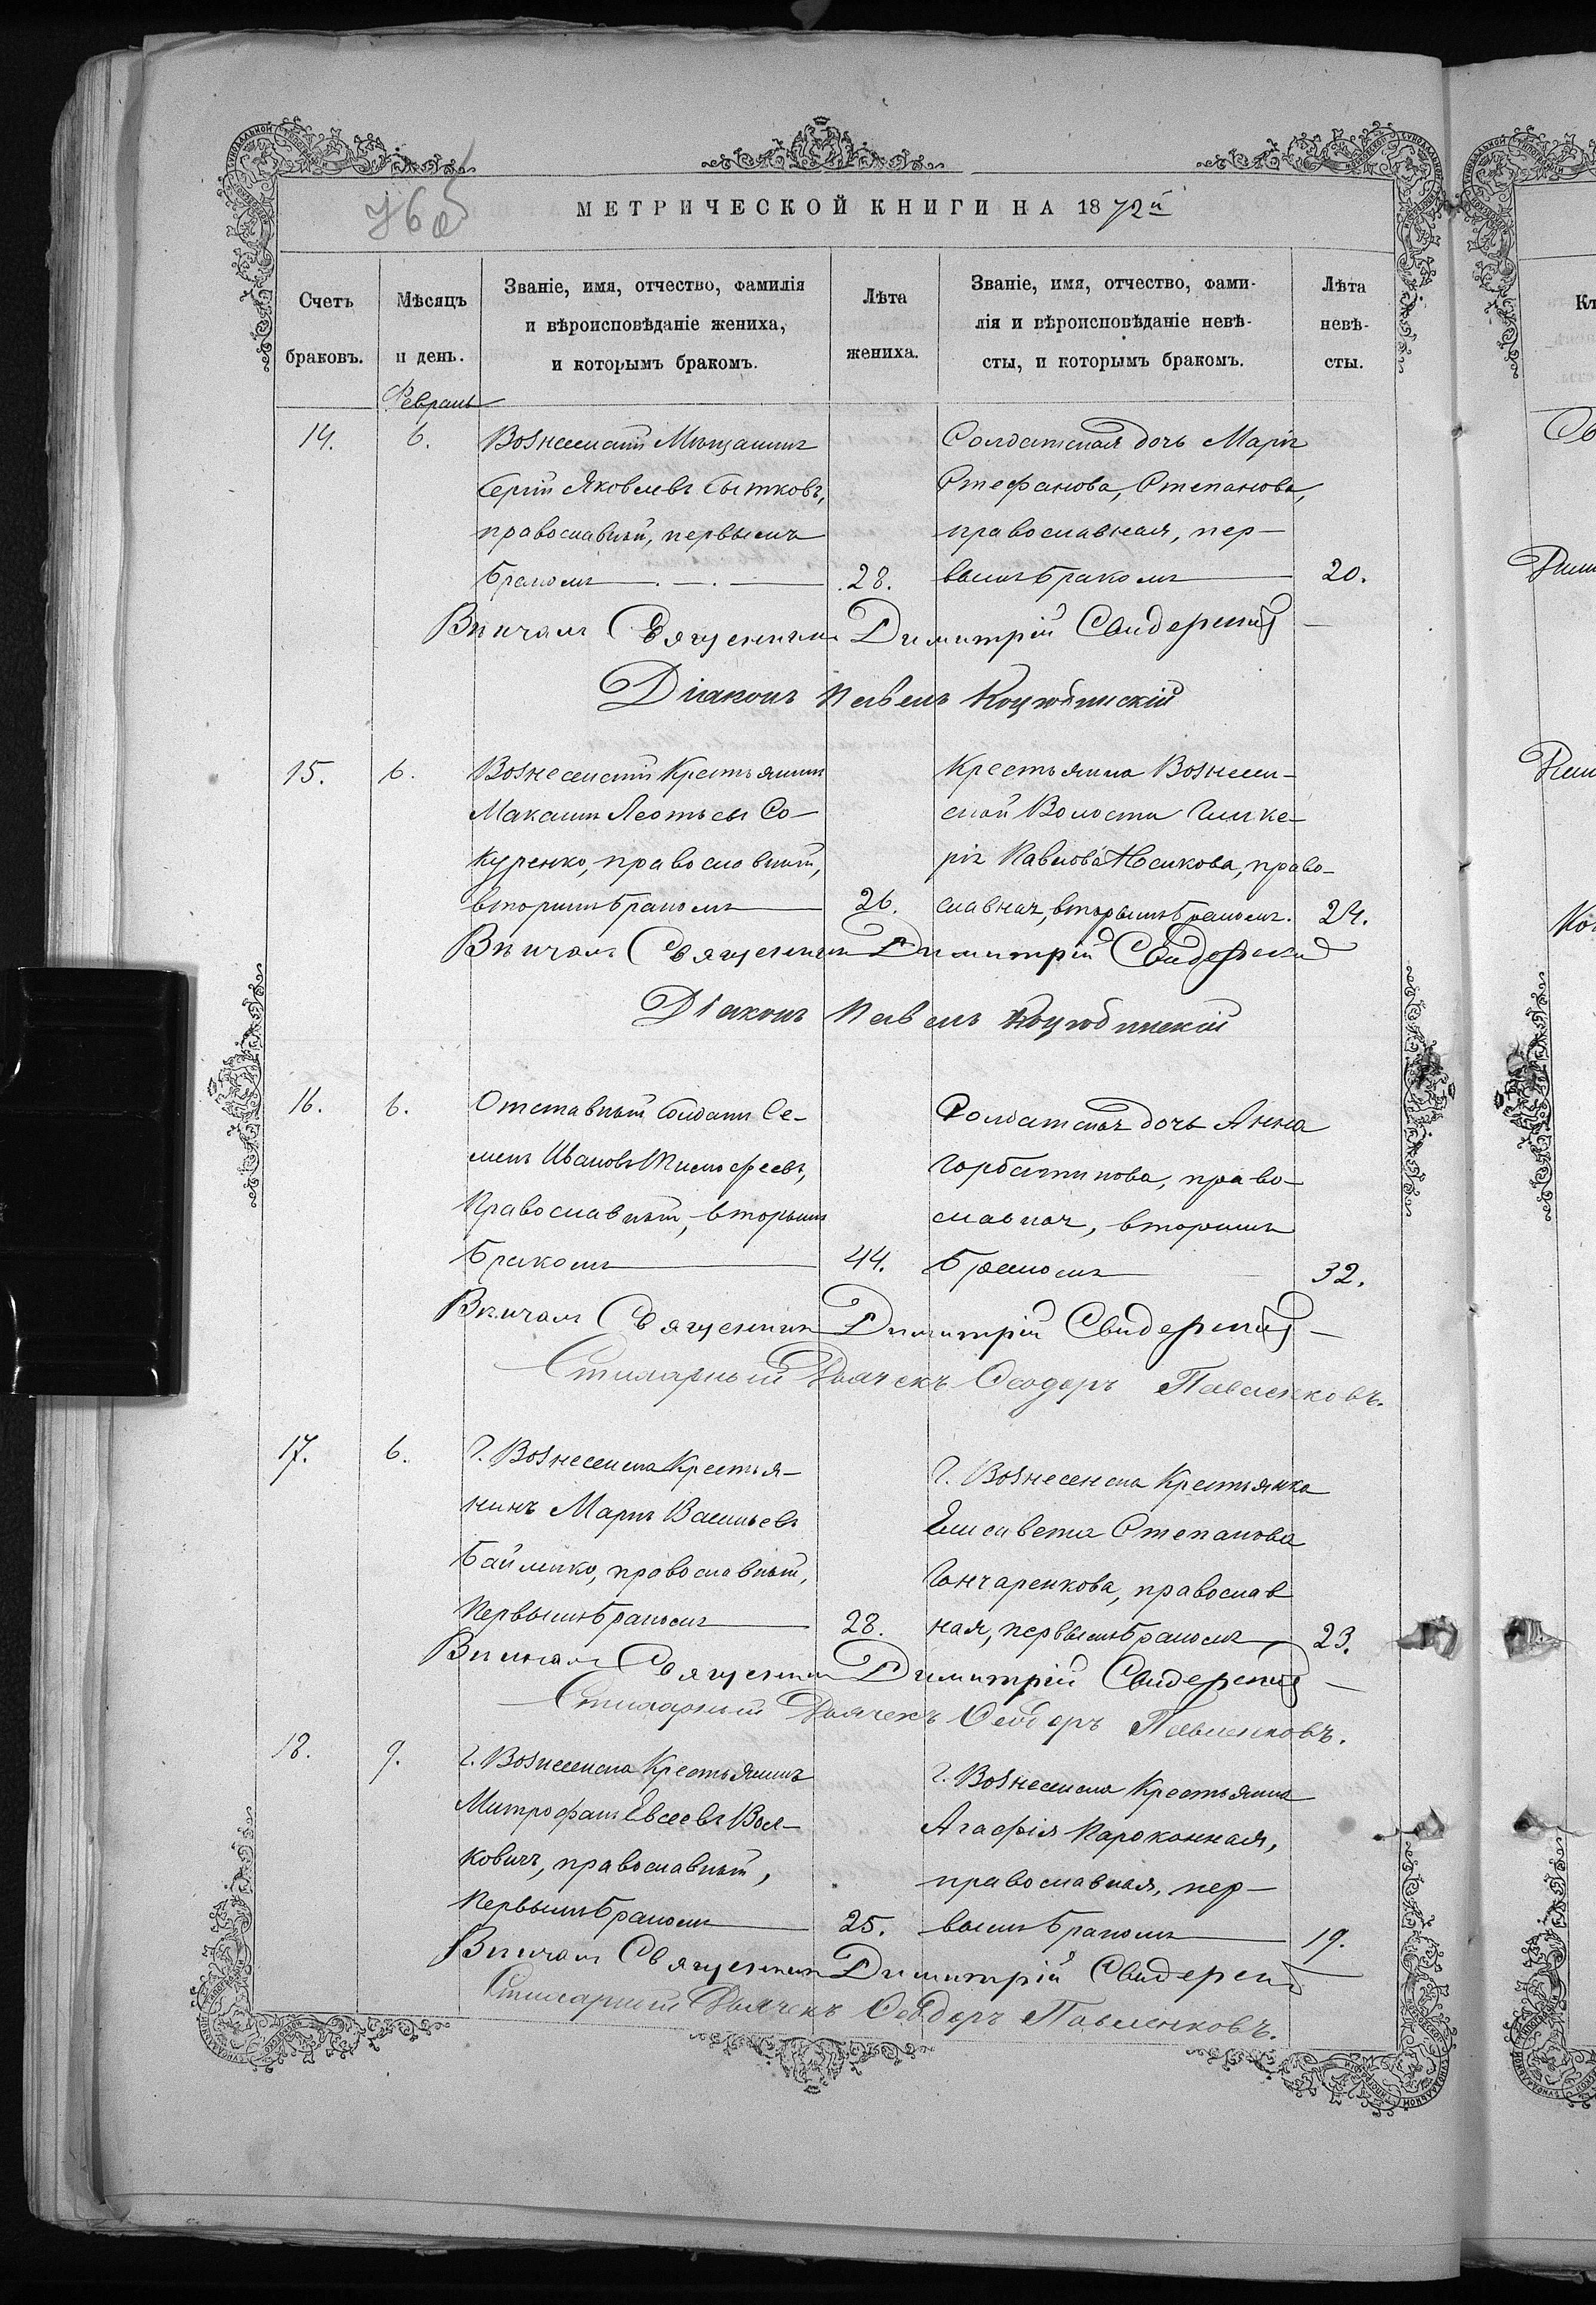 МЕТРИЧЕСКОЙ КНИГИ НА 1872й
Счетъ браковъ.
Мѣсяцъ и день.
Званіе, имя, отчество, фамилія и вѣроисповѣданіе жениха, и которымъ бракомъ.
Лѣта жениха.
Званіе, имя, отчество, фамилія и вѣроисповѣданіе невѣсты, и которымъ бракомъ.
Лѣта невѣсты.
Февраль
14. 6.
Вознесенскій Мѣщанинъ
Сергій Яковлевъ Сытковъ,
православный, первымъ
бракомъ 28.
Солдатская дочь Марія
Стефанова, Степанова,
православная, пер-
вымъ бракомъ 20.
Вѣнчалъ Священникъ Димитрій Свидерскій
Діаконъ Павелъ Коцюбинскій
15. 6.
Вознесенскій Крестьянинъ
Максимъ Леотьевъ Со-
куренко, православный,
вторымъ бракомъ 26.
Крестьянка Вознесен-
ской Волости Глике-
рія Павлова Носикова, право-
славная, вторымъ бракомъ. 24.
Вѣнчалъ Священникъ Димитрій Свидерскій
Діаконъ Павелъ Коцюбинскій
16. 6.
Отставный Солдатъ Се-
менъ Ивановъ Тимофеевъ,
Православный, вторымъ
бракомъ 44.
Солдатская дочь Анна
Горбатикова, право-
славная, вторымъ
бракомъ 32.
Вѣнчалъ Священникъ Димитрій Свидерскій
Стихарный Дьячекъ Ѳеодоръ Павленковъ.
17. 6.
г. Вознесенска Крестья-
нинъ Маркъ Васильевъ
Байленко, православный,
Первымъ бракомъ 28.
г. Вознесенска Крестьянка
Елисавета Степанова
Гончаренкова, православ
ная, первымъ бракомъ 23.
Вѣнчалъ Священникъ Димитрій Свидерскій
Стихарный Дьячекъ Ѳеодоръ Павленковъ.
18. 9.
г. Вознесенска Крестьянинъ
Митрофанъ Евсеевъ Вол-
ковичъ, православный,
Первымъ бракомъ 25.
г. Вознесенска Крестьянка
Агафія Пароконная,
православная, пер-
вымъ бракомъ 19.
Вѣнчалъ Священникъ Димитрій Свидерскій
Стихарный Дьячекъ Ѳеодоръ Павленковъ.